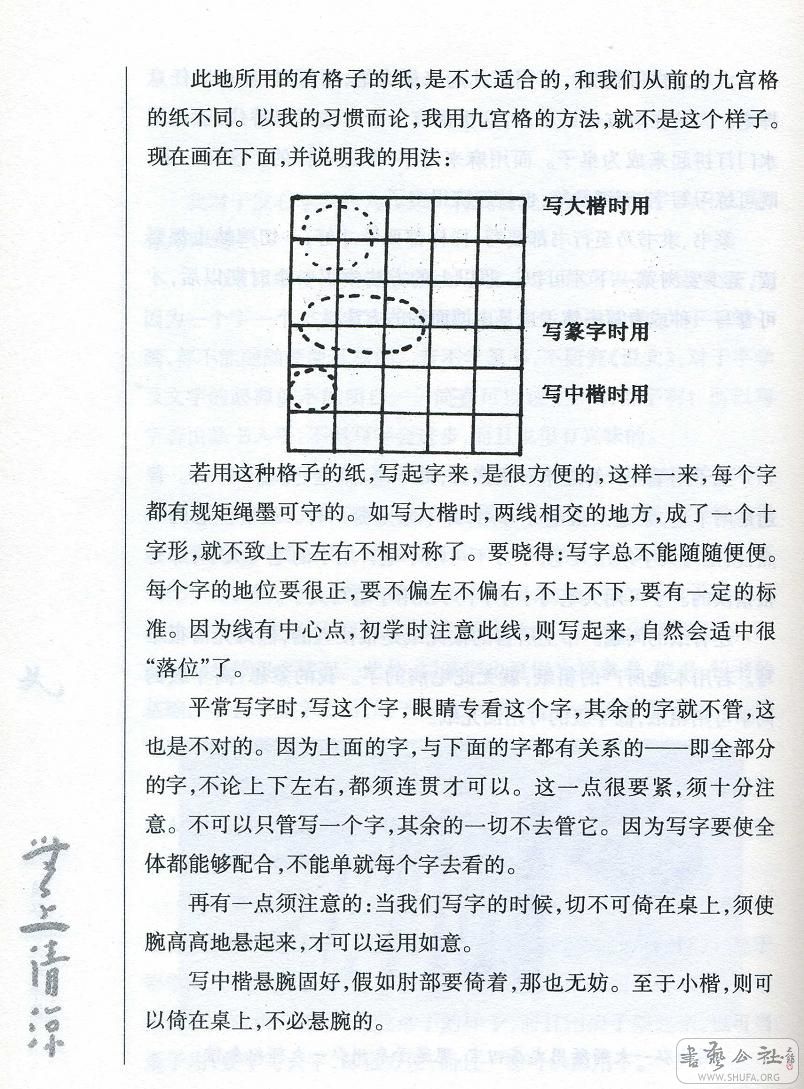 此地所用的有格子的纸，是不大适合的，和我们从前的九宫格
的纸不同。以我的习惯而论，我用九宫格的方法，就不是这个样子。
现在画在下面，并说明我的用法：
写大楷时用
写篆字时用
写中楷时用
若用这种格子的纸，写起字来，是很方便的，这样一来，每个字
都有规矩绳墨可守的。如写大楷时，两线相交的地方，成了一个十
字形，就不致上下左右不相对称了。要晓得：写字总不能随随便便。
每个字的地位要很正，要不偏左不偏右，不上不下，要有一定的标
准。因为线有中心点，初学时注意此线，则写起来，自然会适中很
“落位”了。
平常写字时，写这个字，眼睛专看这个字，其余的字就不管，这
也是不对的。因为上面的字，与下面的字都有关系的——即全部分
的字，不论上下左右，都须连贯才可以。这一点很要紧，须十分注
意。不可以只管写一个字，其余的一切不去管它。因为写字要使全
体都能够配合，不能单就每个字去看的。
再有一点须注意的：当我们写字的时候，切不可倚在桌上，须使
腕高高地悬起来，才可以运用如意。
写中楷悬腕固好，假如肘部要倚着，那也无妨。至于小楷，则可
以倚在桌上，不必悬腕的。
无上清凉
書藝公社
WWW.SHUFA.ORG